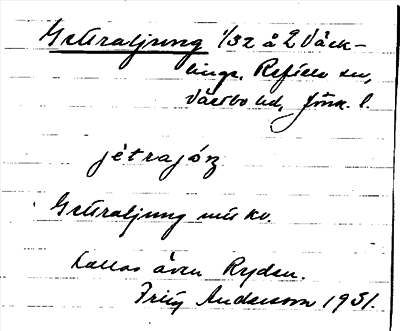 Getraljung 1/32 å 2 Väck-
linge, Reftele sn,
Västbo hd, Jönk. l.
jètrajóŋ
Getraljung
Kallas även Ryden.
Fritz Andersson 1931.